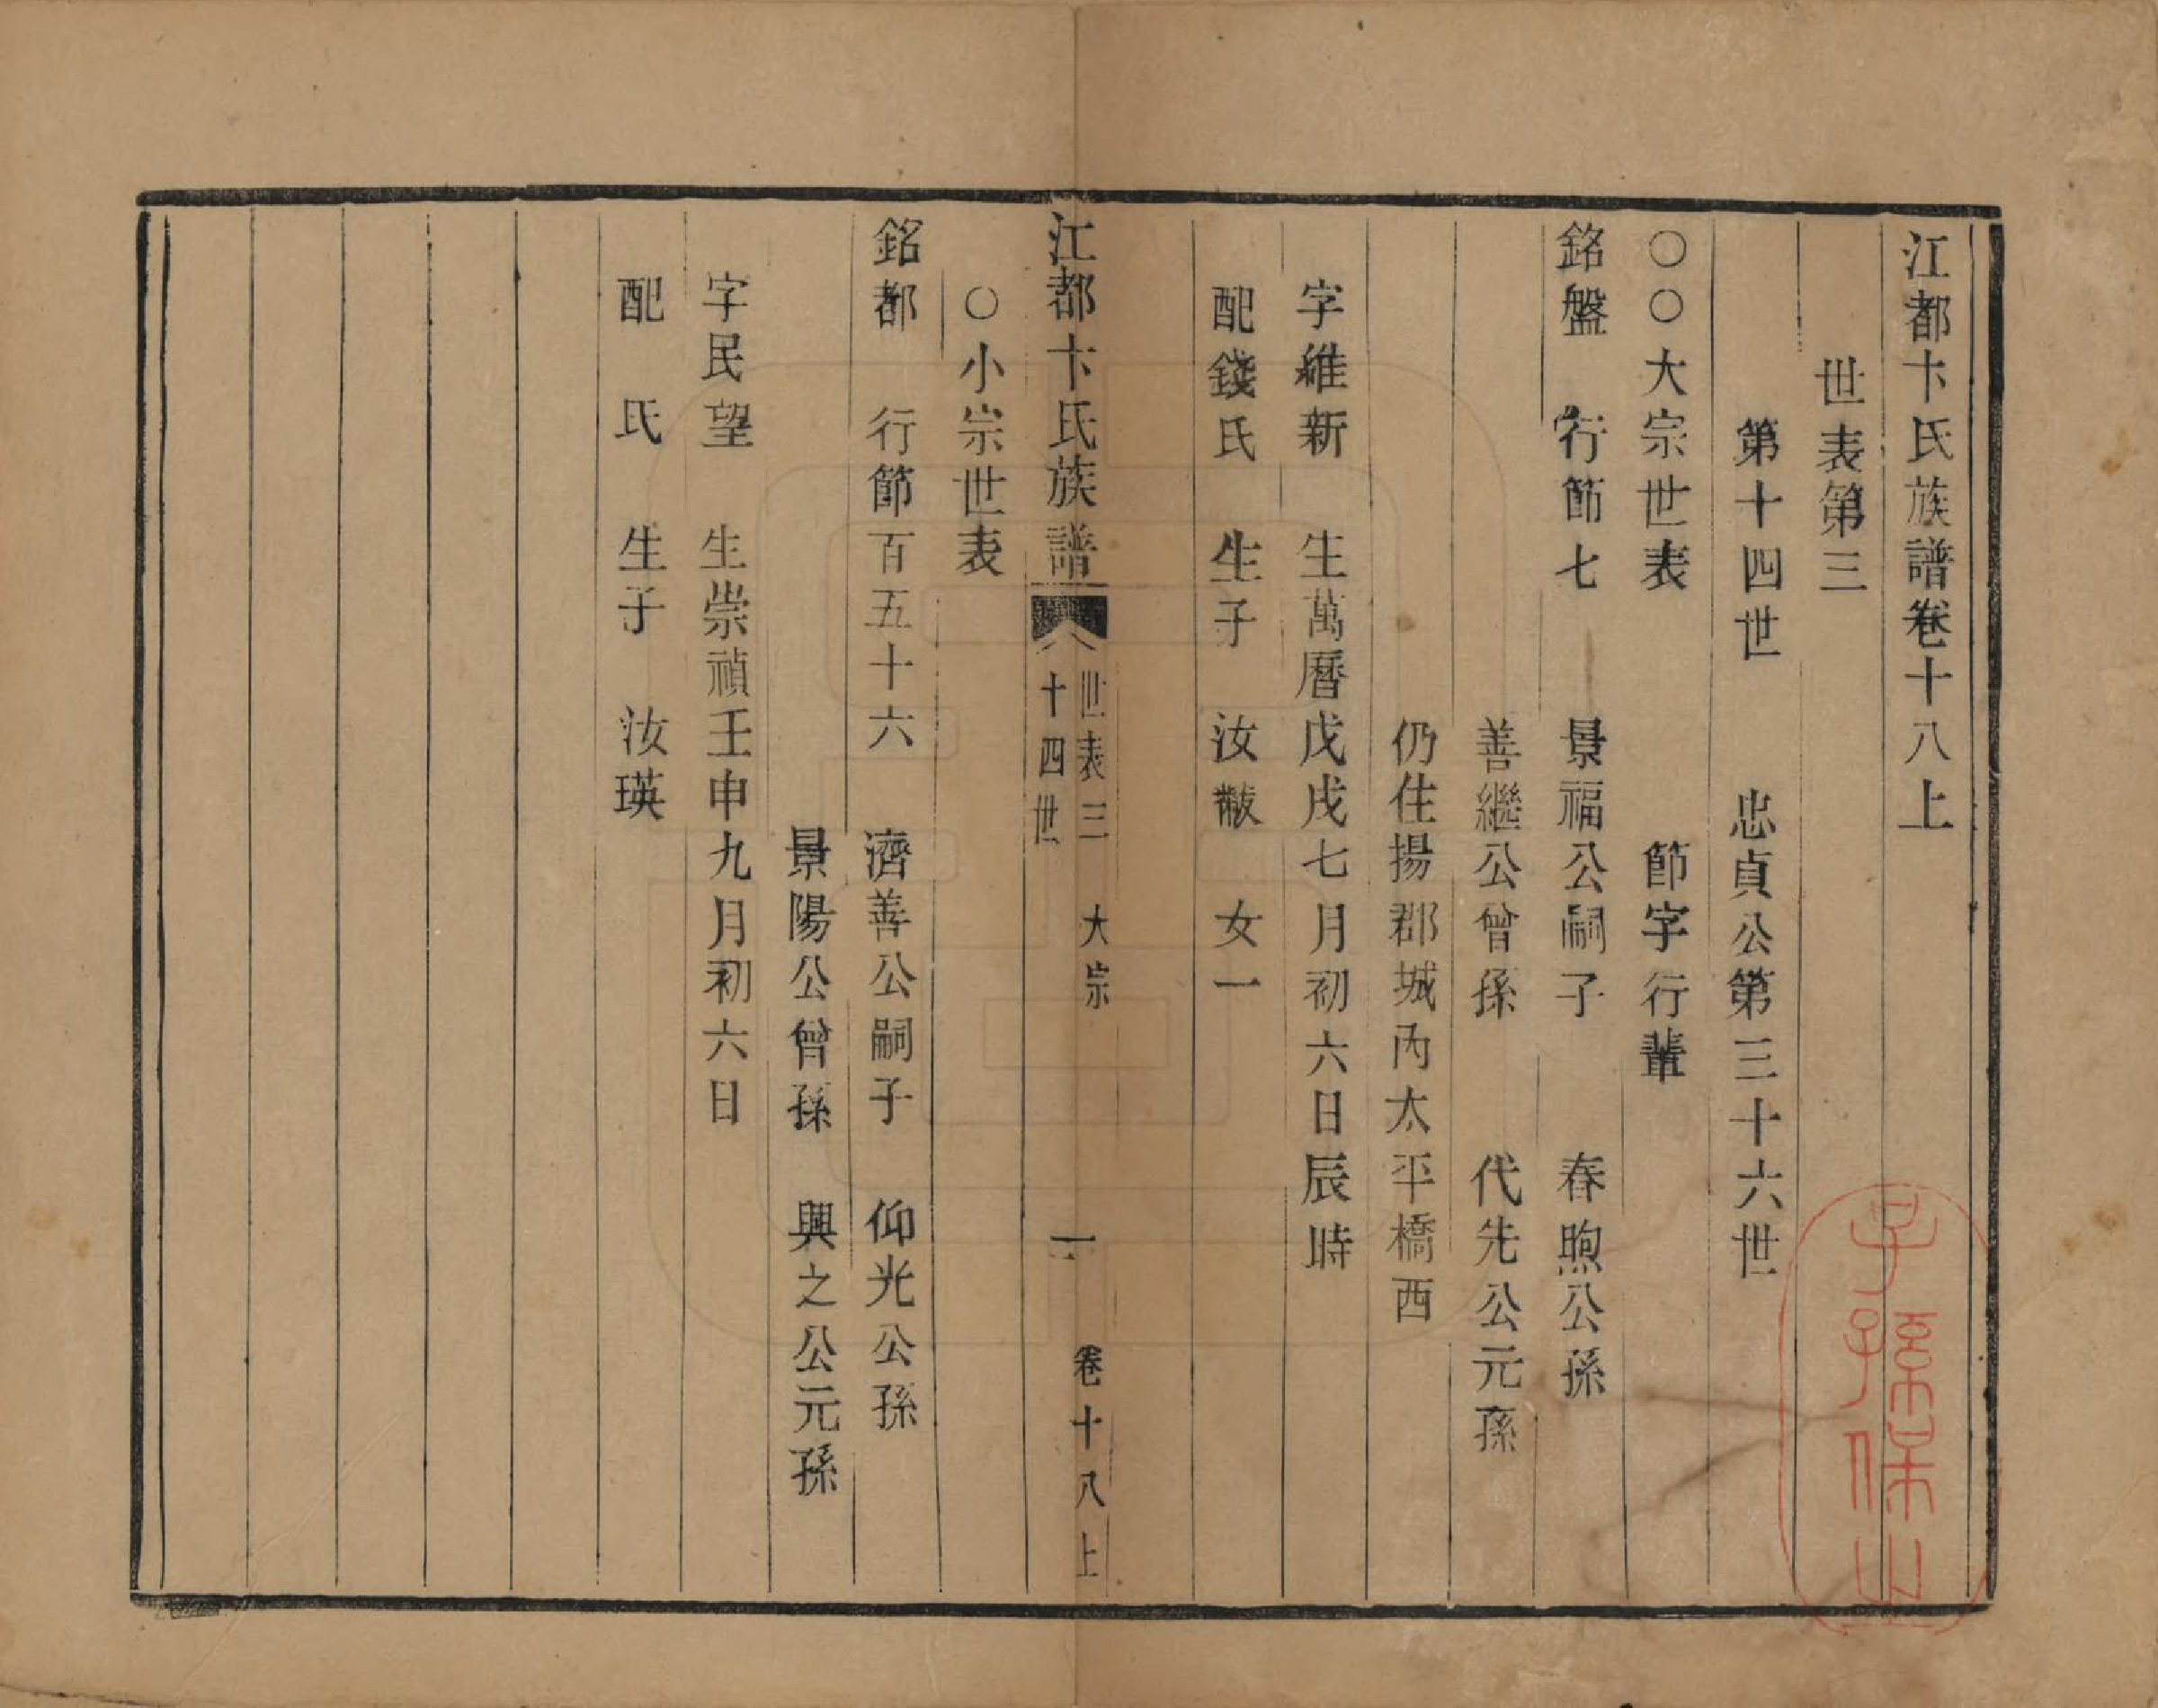 江都卞氏族譜卷十八上
世表第三
第十四世　忠貞公第三十六世
○○大宗世表　節字行輩
銘盤　行節七　景福公嗣子　春煦公孫
善繼公曾孫　代先公元孫
仍住揚郡城內太平橋西
字維新　生萬曆戊戌七月初六日辰時
配錢氏　生子　汝黻　女一
江都卞氏族譜　世表三　大宗　十四世　一　卷十八上
○小宗世表
銘都　行節百五十六　濟善公嗣子　仰光公孫
景陽公曾孫　興之公元孫
字民望　生崇禎壬申九月初六日
配　氏　生子　汝瑛
子孫保之